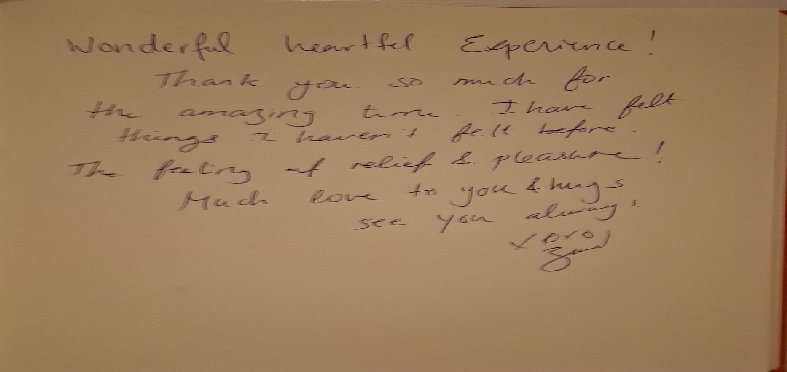 Wonderful heartfel Experience!
Thank you so much for
the amazing time. I have felt
things I haven't felt before.
The feeling of relief & pleasure!
Much love to you & hugs
see you always